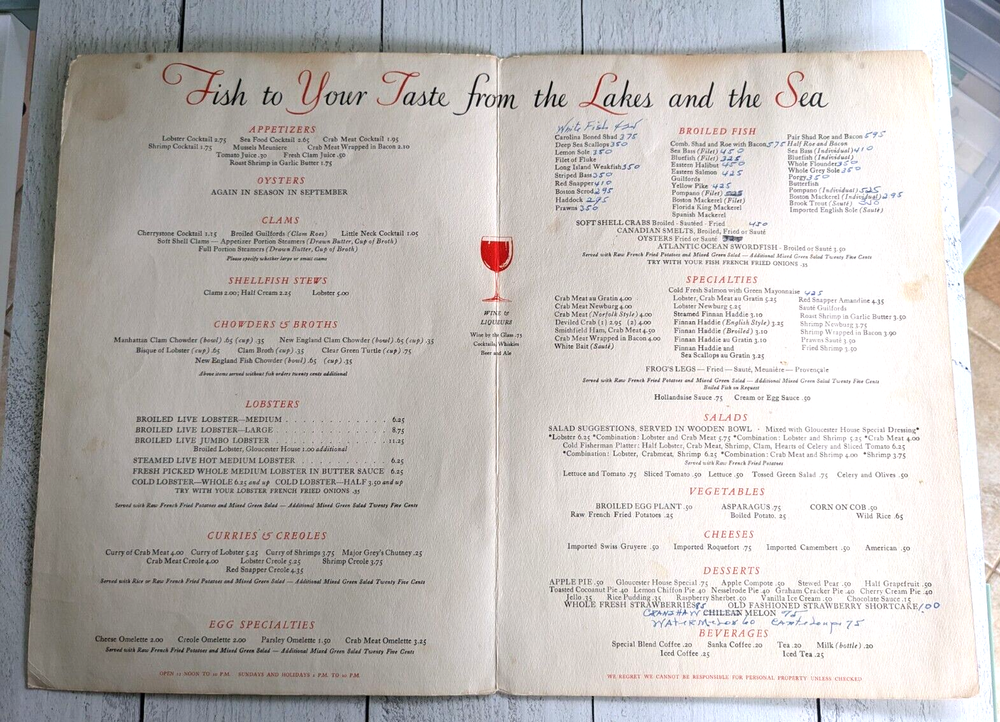 Fish to Your Taste from the Lakes and the Sea
APPETIZERS
Lobster Cocktail 2.75 Sea Food Cocktail 2.65 Crab Meat Cocktail 1.95
Shrimp Cocktail 1.75 Mussels Meuniere Crab Meat Wrapped in Bacon 2.10
Tomato Juice .30 Fresh Clam Juice .50
Roast Shrimp in Garlic Butter 1.75
OYSTERS
AGAIN IN SEASON IN SEPTEMBER
CLAMS
Cherrystone Cocktail 1.15 Broiled Guilfords (Clam Roes) Little Neck Cocktail 1.05
Soft Shell Clams — Appetizer Portion Steamers (Drawn Butter, Cup of Broth)
Full Portion Steamers (Drawn Butter, Cup of Broth)
Please specify whether large or small clams
SHELLFISH STEWS
Clams 2.00; Half Cream 2.25 Lobster 5.00
CHOWDERS & BROTHS
Manhattan Clam Chowder (bowl) .65 (cup) .35 New England Clam Chowder (bowl) .65 (cup) .35
Bisque of Lobster (cup) .65 Clam Broth (cup) .35 Clear Green Turtle (cup) .75
New England Fish Chowder (bowl) .65 (cup) .35
Above items served without fish orders twenty cents additional
LOBSTERS
BROILED LIVE LOBSTER—MEDIUM 6.25
BROILED LIVE LOBSTER—LARGE 8.75
BROILED LIVE JUMBO LOBSTER 11.25
Broiled Lobster, Gloucester House 1.00 additional
STEAMED LIVE HOT MEDIUM LOBSTER 6.25
FRESH PICKED WHOLE MEDIUM LOBSTER IN BUTTER SAUCE 6.25
COLD LOBSTER—WHOLE 6.25 and up COLD LOBSTER—HALF 3.50 and up
TRY WITH YOUR LOBSTER FRENCH FRIED ONIONS .35
Served with Raw French Fried Potatoes and Mixed Green Salad — Additional Mixed Green Salad Twenty Five Cents
CURRIES & CREOLES
Curry of Crab Meat 4.00 Curry of Lobster 5.25 Curry of Shrimps 3.75 Major Grey's Chutney .25
Crab Meat Creole 4.00 Lobster Creole 5.25 Shrimp Creole 3.75
Red Snapper Creole 4.35
Served with Rice or Raw French Fried Potatoes and Mixed Green Salad — Additional Mixed Green Salad Twenty Five Cents
EGG SPECIALTIES
Cheese Omelette 2.00 Creole Omelette 2.00 Parsley Omelette 1.50 Crab Meat Omelette 3.25
Served with Raw French Fried Potatoes and Mixed Green Salad — Additional Mixed Green Salad Twenty Five Cents
OPEN 12 NOON TO 10 P.M. SUNDAYS AND HOLIDAYS 1 P.M. TO 10 P.M.
WINE &
LIQUEURS
Wine by the Glass .75
Cocktails, Whiskies
Beer and Ale
White Fish
Carolina Boned Shad 375
Deep Sea Scallops 350
Lemon Sole 350
Filet of Fluke
Long Island Weakfish 350
Striped Bass 350
Red Snapper 410
Boston Scrod 295
Haddock 295
Prawns 350
BROILED FISH
Comb. Shad and Roe with Bacon 575
Sea Bass (Filet) 450
Bluefish (Filet) 325
Eastern Halibut 450
Eastern Salmon 425
Guilfords
Yellow Pike 425
Pompano (Filet)
Boston Mackerel (Filet)
Florida King Mackerel
Spanish Mackerel
Pair Shad Roe and Bacon 595
Half Roe and Bacon
Sea Bass (Individual) 410
Bluefish (Individual)
Whole Flounder 350
Whole Grey Sole 350
Porgy 350
Butterfish
Pompano (Individual) 525
Boston Mackerel (Individual) 295
Brook Trout (Sauté)
Imported English Sole (Sauté)
SOFT SHELL CRABS Broiled - Sautéed - Fried 450
CANADIAN SMELTS, Broiled, Fried or Sauté
OYSTERS Fried or Sauté
ATLANTIC OCEAN SWORDFISH - Broiled or Sauté 3.50
Served with Raw French Fried Potatoes and Mixed Green Salad — Additional Mixed Green Salad Twenty Five Cents
TRY WITH YOUR FISH FRENCH FRIED ONIONS .35
SPECIALTIES
Cold Fresh Salmon with Green Mayonnaise 425
Crab Meat au Gratin 4.00
Crab Meat Newburg 4.00
Crab Meat (Norfolk Style) 4.00
Deviled Crab (1) 2.95 (2) 4.00
Smithfield Ham, Crab Meat 4.50
Crab Meat Wrapped in Bacon 4.00
White Bait (Sauté)
Lobster, Crab Meat au Gratin 5.25
Lobster Newburg 5.25
Steamed Finnan Haddie 3.10
Finnan Haddie (English Style) 3.25
Finnan Haddie (Broiled) 3.10
Finnan Haddie au Gratin 3.10
Finnan Haddie and
Sea Scallops au Gratin 3.25
Red Snapper Amandine 4.35
Sauté Guilfords
Roast Shrimp in Garlic Butter 3.50
Shrimp Newburg 3.75
Shrimp Wrapped in Bacon 3.90
Prawns Sauté 3.50
Fried Shrimp 3.50
FROG'S LEGS — Fried — Sauté, Meunière — Provençale
Served with Raw French Fried Potatoes and Mixed Green Salad — Additional Mixed Green Salad Twenty Five Cents
Boiled Fish on Request
Hollandaise Sauce .75 Cream or Egg Sauce .50
SALADS
SALAD SUGGESTIONS, SERVED IN WOODEN BOWL - Mixed with Gloucester House Special Dressing*
*Lobster 6.25 *Combination: Lobster and Crab Meat 5.75 *Combination: Lobster and Shrimp 5.25 *Crab Meat 4.00
Cold Fisherman Platter: Half Lobster, Crab Meat, Shrimp, Clam, Hearts of Celery and Sliced Tomato 6.25
*Combination: Lobster, Crabmeat, Shrimp 6.25 *Combination: Crab Meat and Shrimp 4.00 *Shrimp 3.75
Served with Raw French Fried Potatoes
Lettuce and Tomato .75 Sliced Tomato .50 Lettuce .50 Tossed Green Salad .75 Celery and Olives .50
VEGETABLES
BROILED EGG PLANT .50 ASPARAGUS .75 CORN ON COB .50
Raw French Fried Potatoes .25 Boiled Potato .25 Wild Rice .65
CHEESES
Imported Swiss Gruyere .50 Imported Roquefort .75 Imported Camembert .50 American .50
DESSERTS
APPLE PIE .50 Gloucester House Special .75 Apple Compote .50 Stewed Pear .50 Half Grapefruit .50
Toasted Cocoanut Pie .40 Lemon Chiffon Pie .40 Nesselrode Pie .40 Graham Cracker Pie .40 Cherry Cream Pie .40
Jello .35 Rice Pudding .35 Raspberry Sherbet .50 Vanilla Ice Cream .50 Chocolate Sauce .15
WHOLE FRESH STRAWBERRIES 85 OLD FASHIONED STRAWBERRY SHORTCAKE 100
CRANSHAW CHILEAN MELON 75
WATERMELON 60 Cantaloupe 75
BEVERAGES
Special Blend Coffee .20 Sanka Coffee .20 Tea .20 Milk (bottle) .20
Iced Coffee .25 Iced Tea .25
WE REGRET WE CANNOT BE RESPONSIBLE FOR PERSONAL PROPERTY UNLESS CHECKED